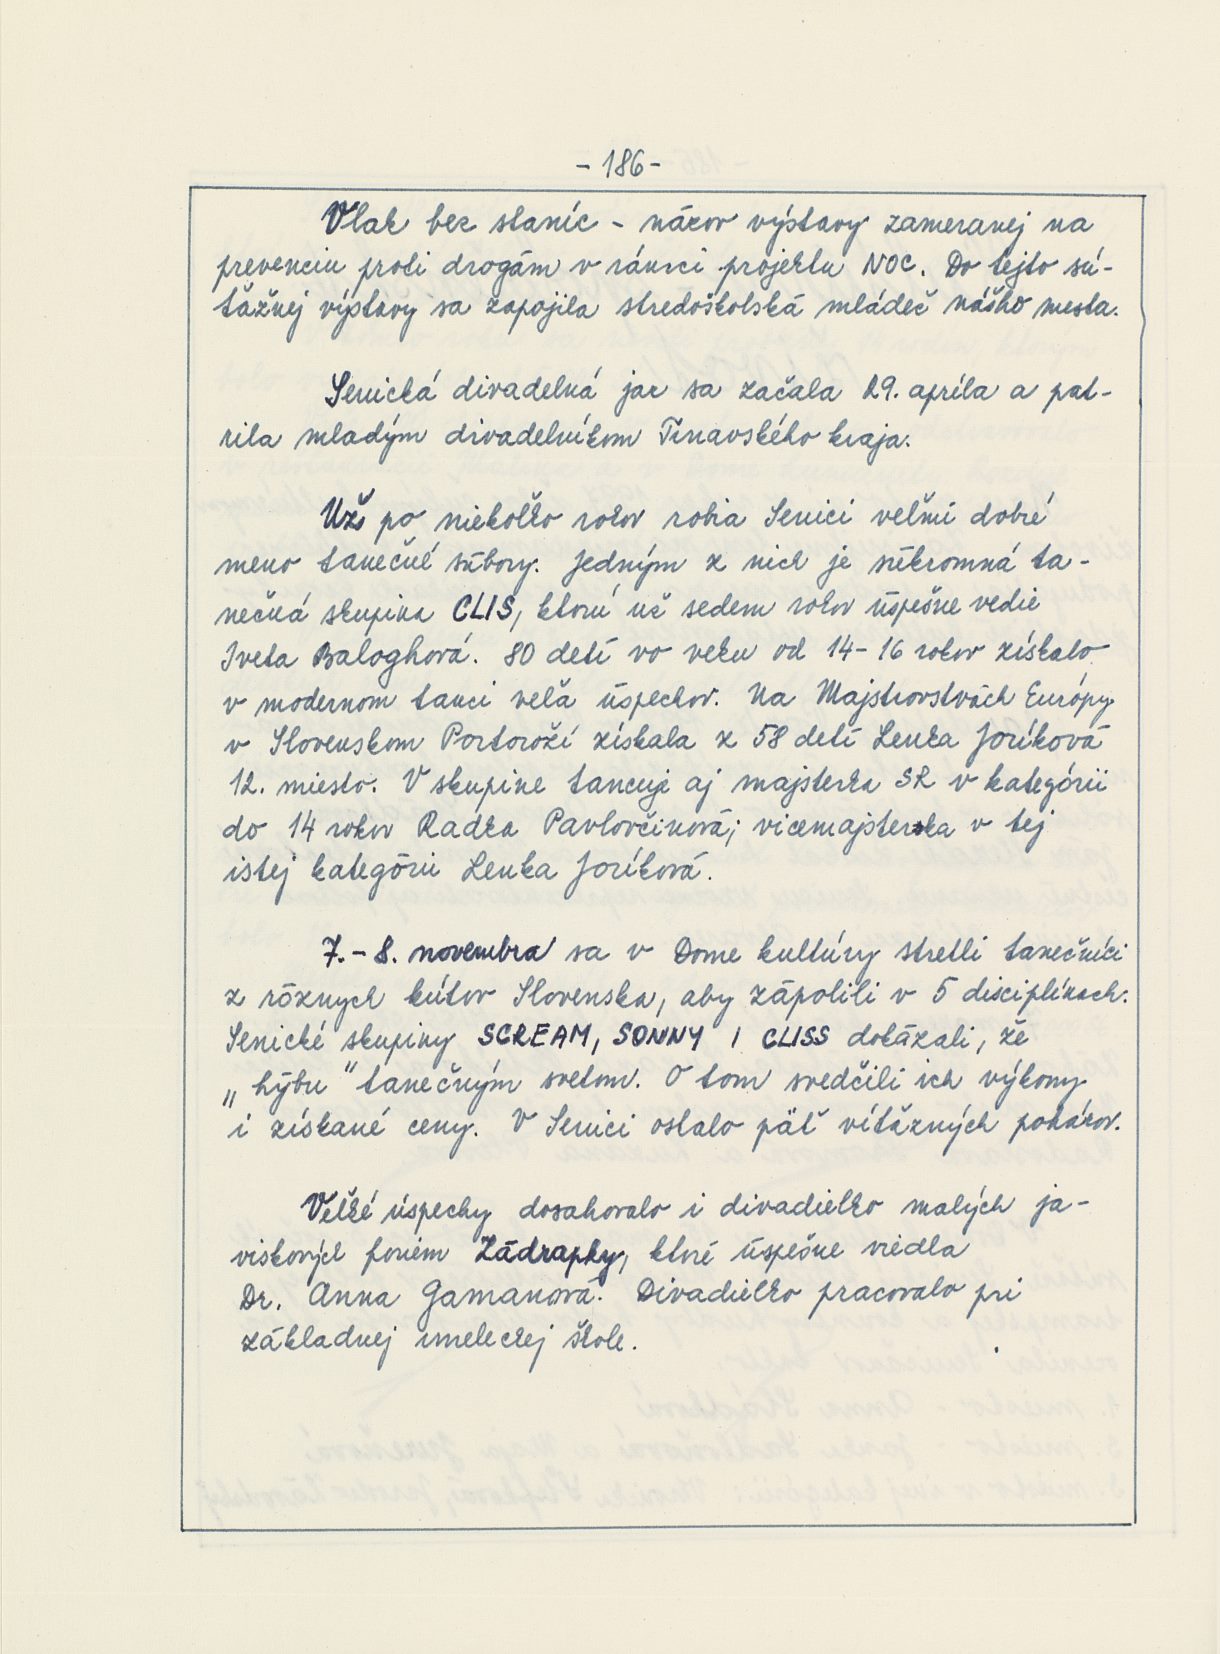 - 186 -
Vlak bez staníc - názov výstavy zameranej na
prevenciu proti drogám v rámci projektu NOC. Do tejto sú-
ťažnej výstavy sa zapojila stredoškolská mládež nášho mesta.
Senická divadelná jar sa začala 29. apríla a pat-
rila mladým divadelníkom Trnavského kraja.
Už po niekoľko rokov robia Senici veľmi dobré
meno tanečné súbory. Jedným z nich je súkromná ta-
nečná skupina CLIS, ktorú už sedem rokov úspešne vedie
Iveta Baloghová. 80 detí vo veku od 14-16 rokov získalo
v modernom tanci veľa úspechov. Na Majstrovstvách Európy
v Slovenskom Portoroží získala z 58 detí Lenka Joríková
12. miesto. V skupine tancuje aj majsterka SR v kategórii
do 14 rokov Radka Pavlovčinová; vicemajsterka v tej
istej kategórii Lenka Joríková.
7.-8. novembra sa v Dome kultúry stretli tanečníci
z rôznych kútov Slovenska, aby zápolili v 5 disciplínach.
Senické skupiny SCREAM, SONNY I CLISS dokázali, že
„hýbu" tanečným svetom. O tom svedčili ich výkony
i získané ceny. V Senici ostalo päť víťazných pohárov.
Veľké úspechy dosahovalo i divadielko malých ja-
viskových foriem Zádrapky, ktoré úspešne viedla
Dr. Anna Gamanová. Divadielko pracovalo pri
základnej umeleckej škole.